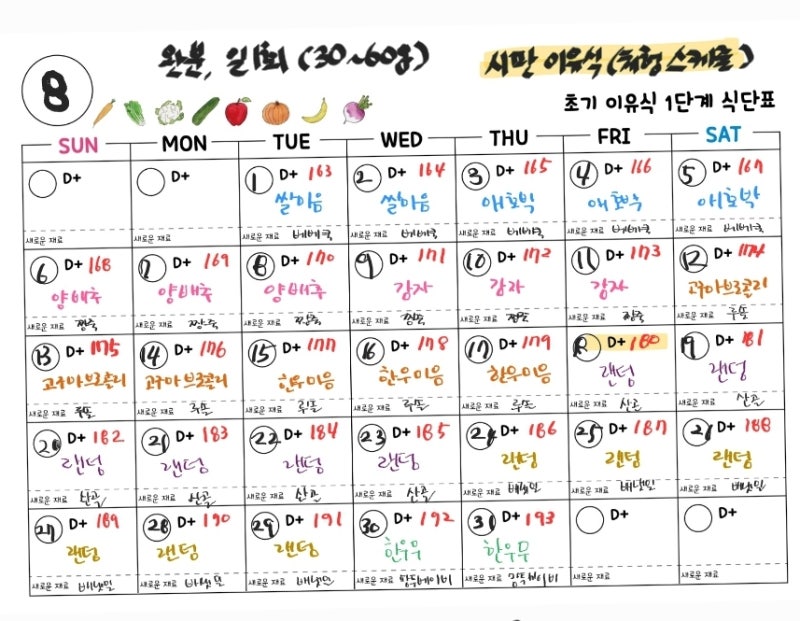 8
완분, 일1회 (30~60g)
시판 이유식 (체험 스케줄)
초기 이유식 1단계 식단표
SUN MON TUE WED THU FRI SAT
D+ D+ 1 D+ 163 2 D+ 164 3 D+ 165 4 D+ 166 5 D+ 167
쌀미음 쌀미음 애호박 애호박 애호박
새로운 재료 새로운 재료 새로운 재료 베베쿡 새로운 재료 베베쿡 새로운 재료 베베쿡 새로운 재료 베베쿡 새로운 재료 베베쿡
6 D+ 168 7 D+ 169 8 D+ 170 9 D+ 171 10 D+ 172 11 D+ 173 12 D+ 174
양배추 양배추 양배추 감자 감자 감자 고구마브로콜리
새로운 재료 짱죽 새로운 재료 짱죽 새로운 재료 짱죽 새로운 재료 짱죽 새로운 재료 짱죽 새로운 재료 짱죽 새로운 재료 루솔
13 D+ 175 14 D+ 176 15 D+ 177 16 D+ 178 17 D+ 179 18 D+ 180 19 D+ 181
고구마브로콜리 고구마브로콜리 한우미음 한우미음 한우미음 랜덤 랜덤
새로운 재료 루솔 새로운 재료 루솔 새로운 재료 루솔 새로운 재료 루솔 새로운 재료 루솔 새로운 재료 산골 새로운 재료 산골
20 D+ 182 21 D+ 183 22 D+ 184 23 D+ 185 24 D+ 186 25 D+ 187 D+ 188
랜덤 랜덤 랜덤 랜덤 랜덤 랜덤 랜덤
새로운 재료 산골 새로운 재료 산골 새로운 재료 산골 새로운 재료 산골 새로운 재료 배냇밀 새로운 재료 배냇밀 새로운 재료 배냇밀
27 D+ 189 28 D+ 190 29 D+ 191 30 D+ 192 31 D+ 193 D+ D+
랜덤 랜덤 랜덤 한우무 한우무
새로운 재료 배냇밀 새로운 재료 배냇밀 새로운 재료 배냇밀 새로운 재료 새로운 재료 새로운 재료 새로운 재료